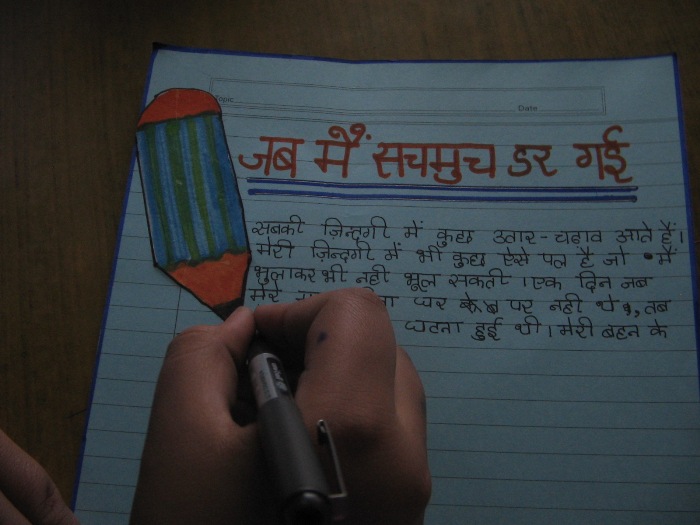 Topic
Date
जब मैं सचमुच डर गई
सबकी ज़िन्दगी में कुछ उतार-चढ़ाव आते हैं।
मेरी ज़िन्दगी में भी कुछ ऐसे पल है जो मैं
भुलाकर भी नही भूल सकती। एक दिन जब
मेरे पर नही थे, तब
घटना हुई थी। मेरी बहन के